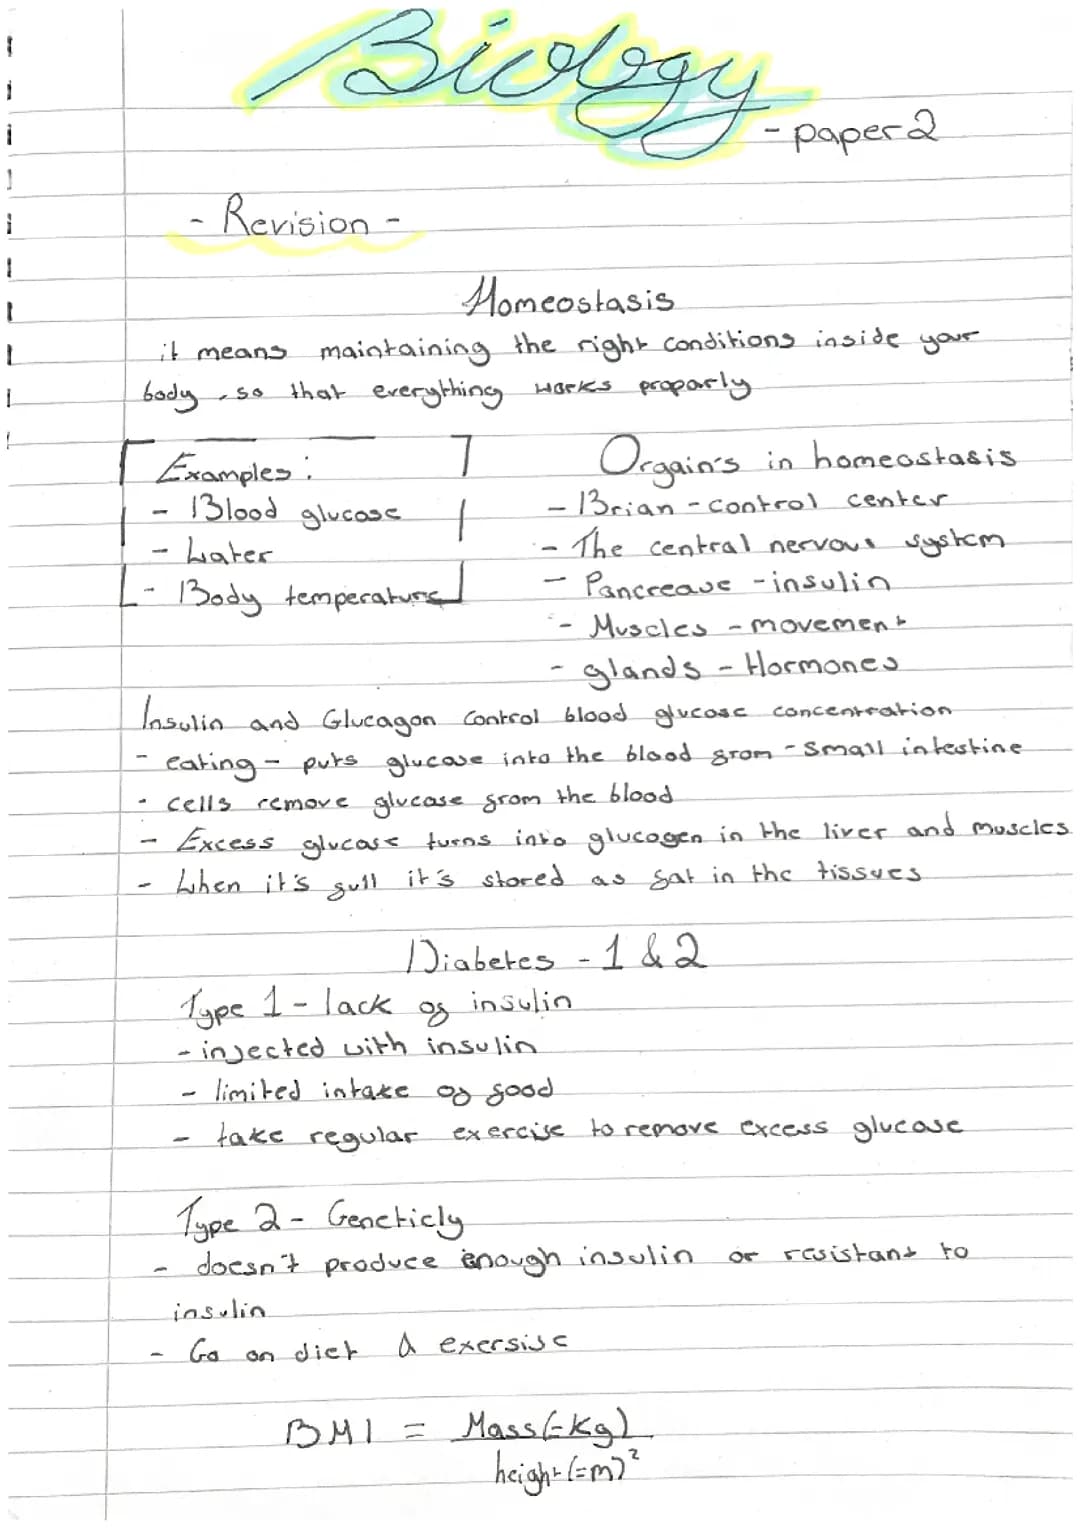 Biology
- paper 2
- Revision -
Homeostasis
it means maintaining the right conditions inside your
body, so that everything works proparly
Examples:
- Blood glucose
- Water
- Body temperature
Orgain's in homeostasis
- Brian - control center
- The central nervous system
- Pancreave - insulin
- Muscles - movement
- glands - Hormones
Insulin and Glucagon control blood glucose concentration
- eating - puts glucose into the blood from - small intestine
- cells remove glucose from the blood
- Excess glucose turns into glucogen in the liver and muscles
- When it's full it's stored as fat in the tissues
Diabetes - 1 & 2
Type 1 - lack of insulin
- injected with insulin
- limited intake of food
- take regular exercise to remove excess glucose
Type 2 - Geneticly
- doesn't produce enough insulin or resistant to
insulin
- Go on diet & exersise
BMI = Mass (=kg)
height (=m)²